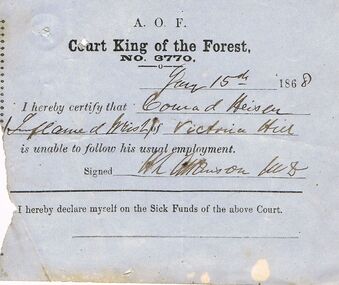 A. O. F.
Court King of the Forest,
NO. 3770.
Jany 15th 1868
I hereby certify that Conrad Heisen
Inflamed Wrist of Victoria Hill
is unable to follow his usual employment.
Signed Atkinson MD
I hereby declare myself on the Sick Funds of the above Court.